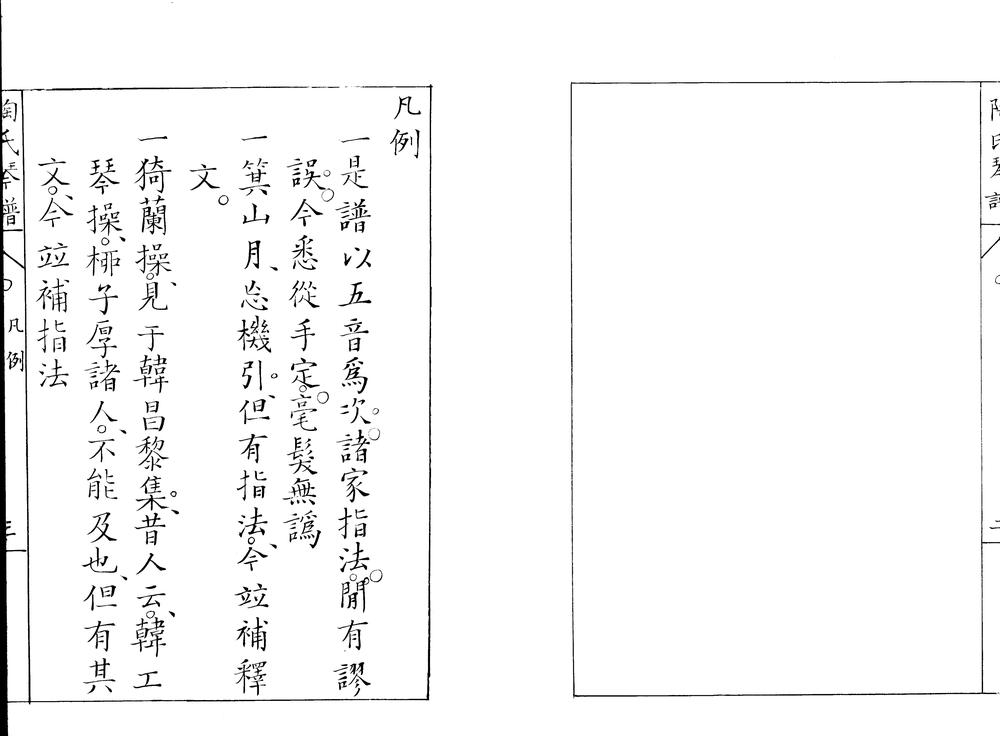 凡例
一是譜以五音爲次。諸家指法。閒有謬
誤。今悉從手定。毫髮無譌
一箕山月、忘機引。但有指法。今竝補釋
文。
一猗蘭操。見于韓昌黎集。昔人云。韓工
琴操。桺子厚諸人。不能及也、但有其
文。今竝補指法
陶氏琴譜
凡例
三